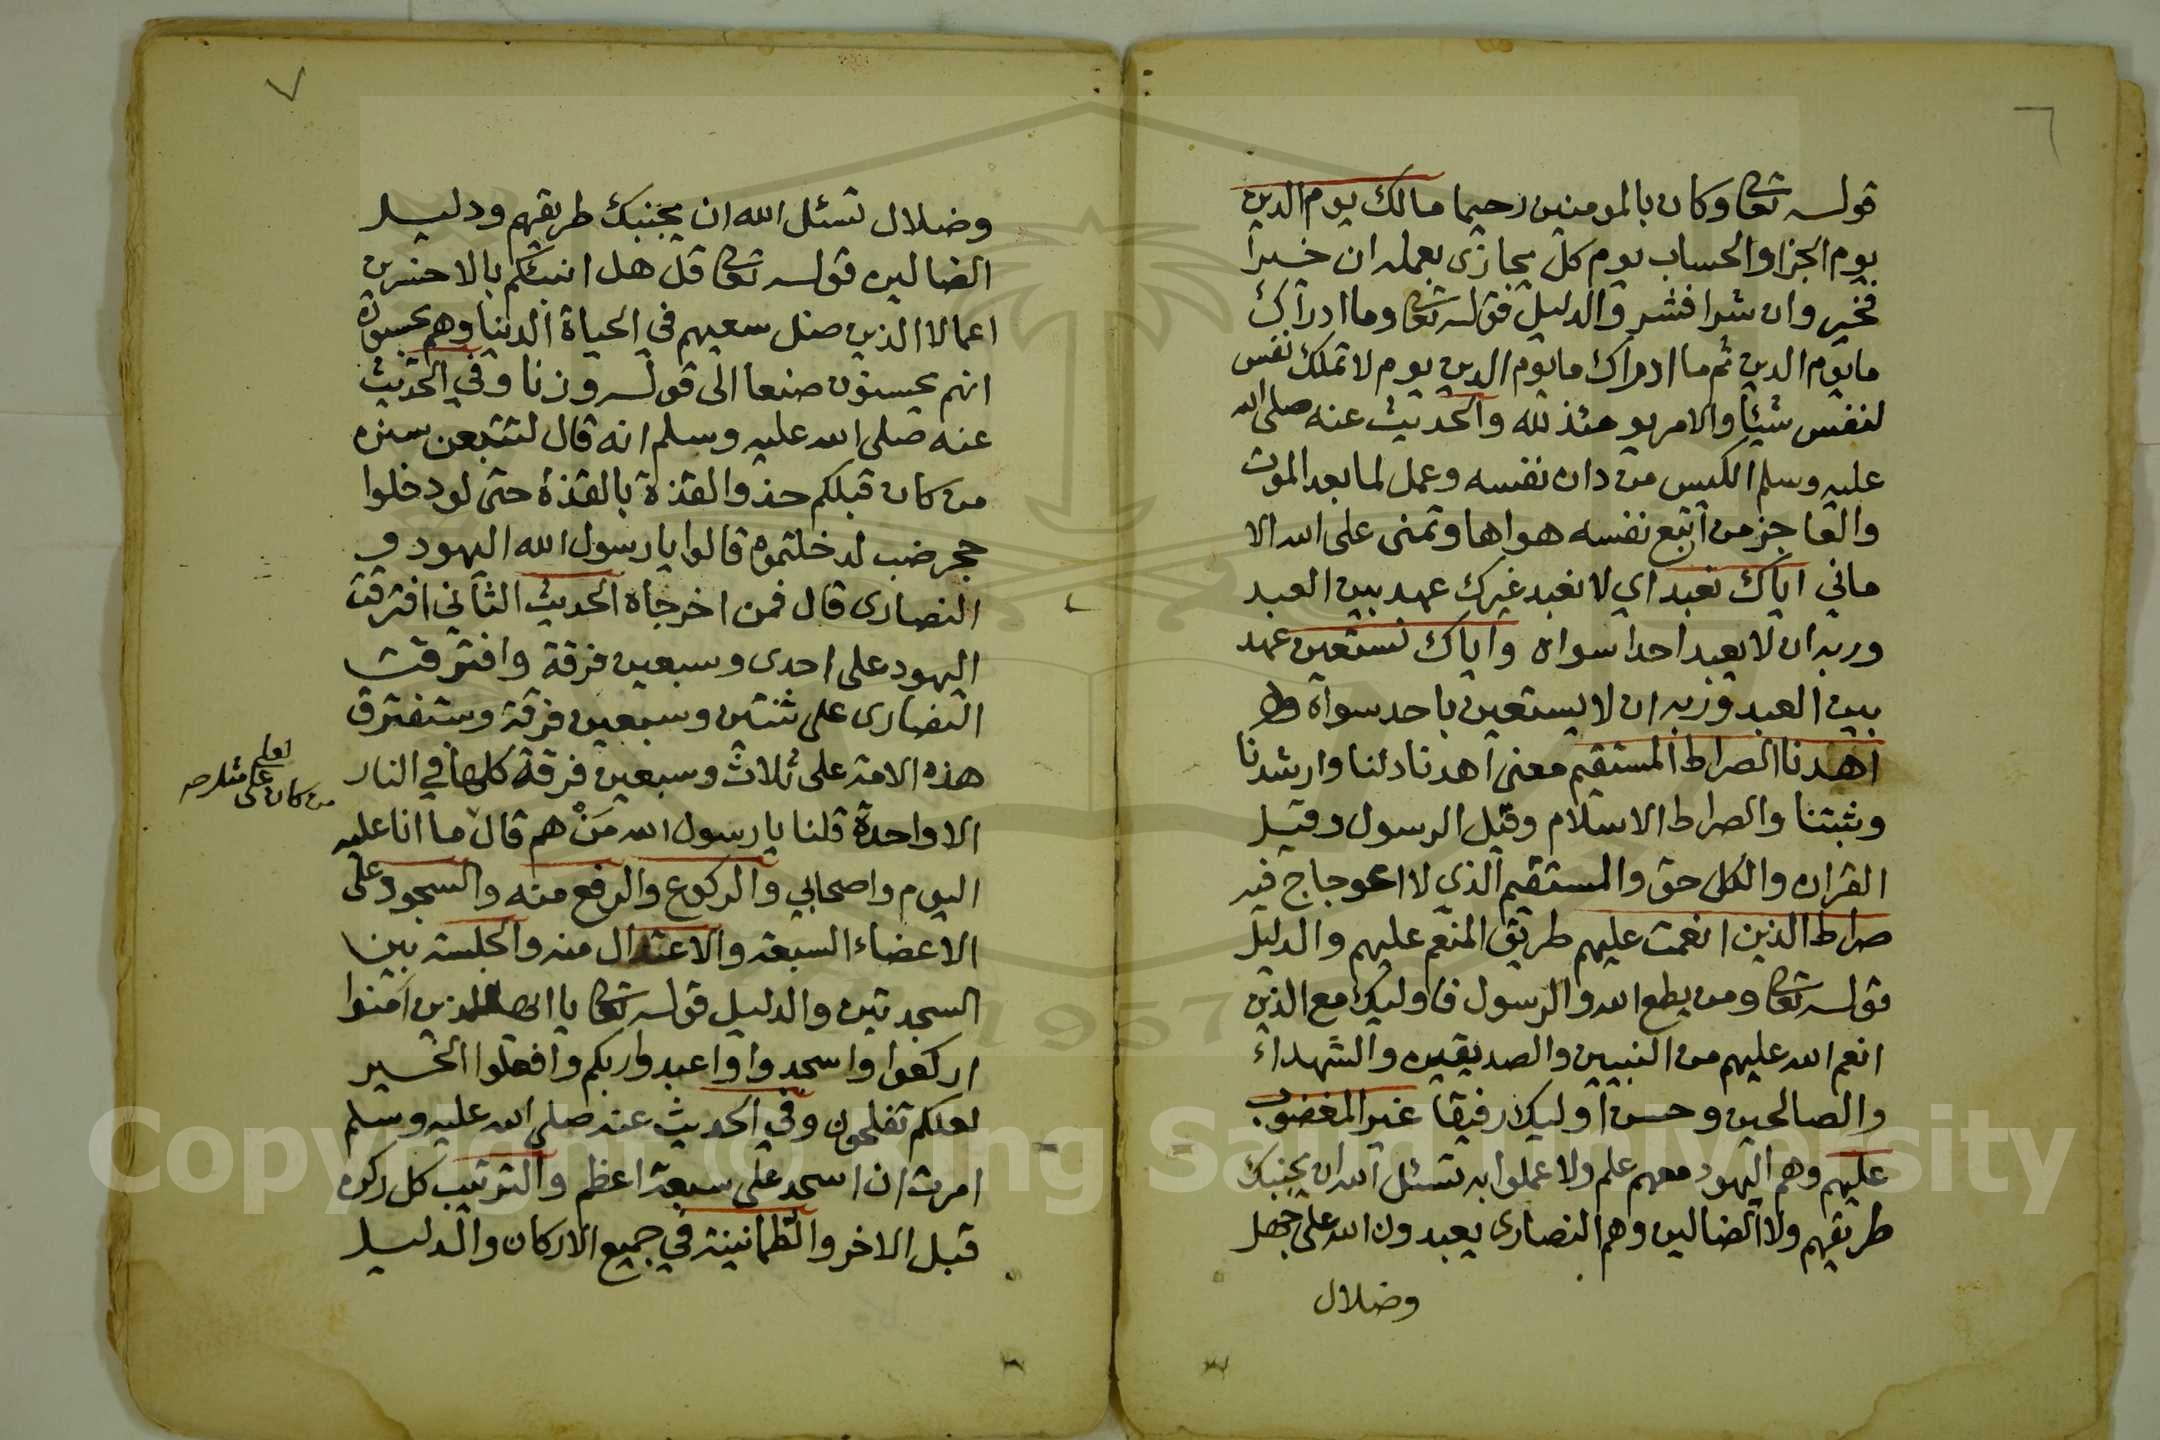 ٦
قوله تعالى وكان بالمومنين رحيما مالك يوم الدين
يوم الجزا والحساب يوم كل يجازى بعمله ان خيرا
فخير وان شرا فشر والدليل قوله تعالى وما ادراك
ما يوم الدين ثم ما ادراك ما يوم الدين يوم لا تملك نفس
لنفس شيئا والامر يومئذ لله والحديث عنه صلى الله
عليه وسلم الكيس من دان نفسه وعمل لما بعد الموت
والعاجز من اتبع نفسه هواها وتمنى على الله الا
ماني اياك نعبد اي لا نعبد غيرك عهد بين العبد
وربه ان لا يعبد احدا سواه واياك نستعين عهد
بين العبد وربه ان لا يستعين باحد سواه
اهدنا الصراط المستقيم معنى اهدنا دلنا وارشدنا
وثبتنا والصراط الاسلام وقيل الرسول وقيل
القران والكل حق والمستقيم الذي لا اعوجاج فيه
صراط الذين انعمت عليهم طريق المنعم عليهم والدليل
قوله تعالى ومن يطع الله والرسول فاوليك مع الذين
انعم الله عليهم من النبيين والصديقين والشهداء
والصالحين وحسن اوليك رفيقا غير المغضوب
عليهم وهم اليهود معهم علم ولا عملوا به تسئل الله ان يجنبك
طريقهم ولا الضالين وهم النصارى يعبدون الله على جهل
وضلال
٧
وضلال تسئل الله ان يجنبك طريقهم ودليل
الضالين قوله تعالى قل هل انبئكم بالاخسرين
اعمالا الذين ضل سعيهم في الحياة الدنيا وهم يحسبون
انهم يحسنون صنعا الى قوله وزنا وفي الحديث
عنه صلى الله عليه وسلم انه قال لتتبعن سنن
من كان قبلكم حذو القذة بالقذة حتى لو دخلوا
حجر ضب لدخلتموه قالوا يا رسول الله اليهود و
النصارى قال فمن اخرجاه الحديث الثاني افترقت
اليهود على احدى وسبعين فرقة وافترقت
النصارى على ثنتين وسبعين فرقة وستفترق
هذه الامة على ثلاث وسبعين فرقة كلها في النار
الا واحدة قلنا يا رسول الله مَنْ هم قال ما انا عليه
من كان على مثل
اليوم واصحابي والركوع والرفع منه والسجود على
الاعضاء السبعة والاعتدال منه والجلسة بين
السجدتين والدليل قوله تعالى يا ايها الذين امنوا
اركعوا واسجدوا واعبدوا ربكم وافعلوا الخير
لعلكم تفلحون وفي الحديث عنه صلى الله عليه وسلم
امرت ان اسجد على سبعة اعظم والترتيب كل ركن
قبل الاخر والطمانينة في جميع الاركان والدليل
1957
Copyright © King Saud University